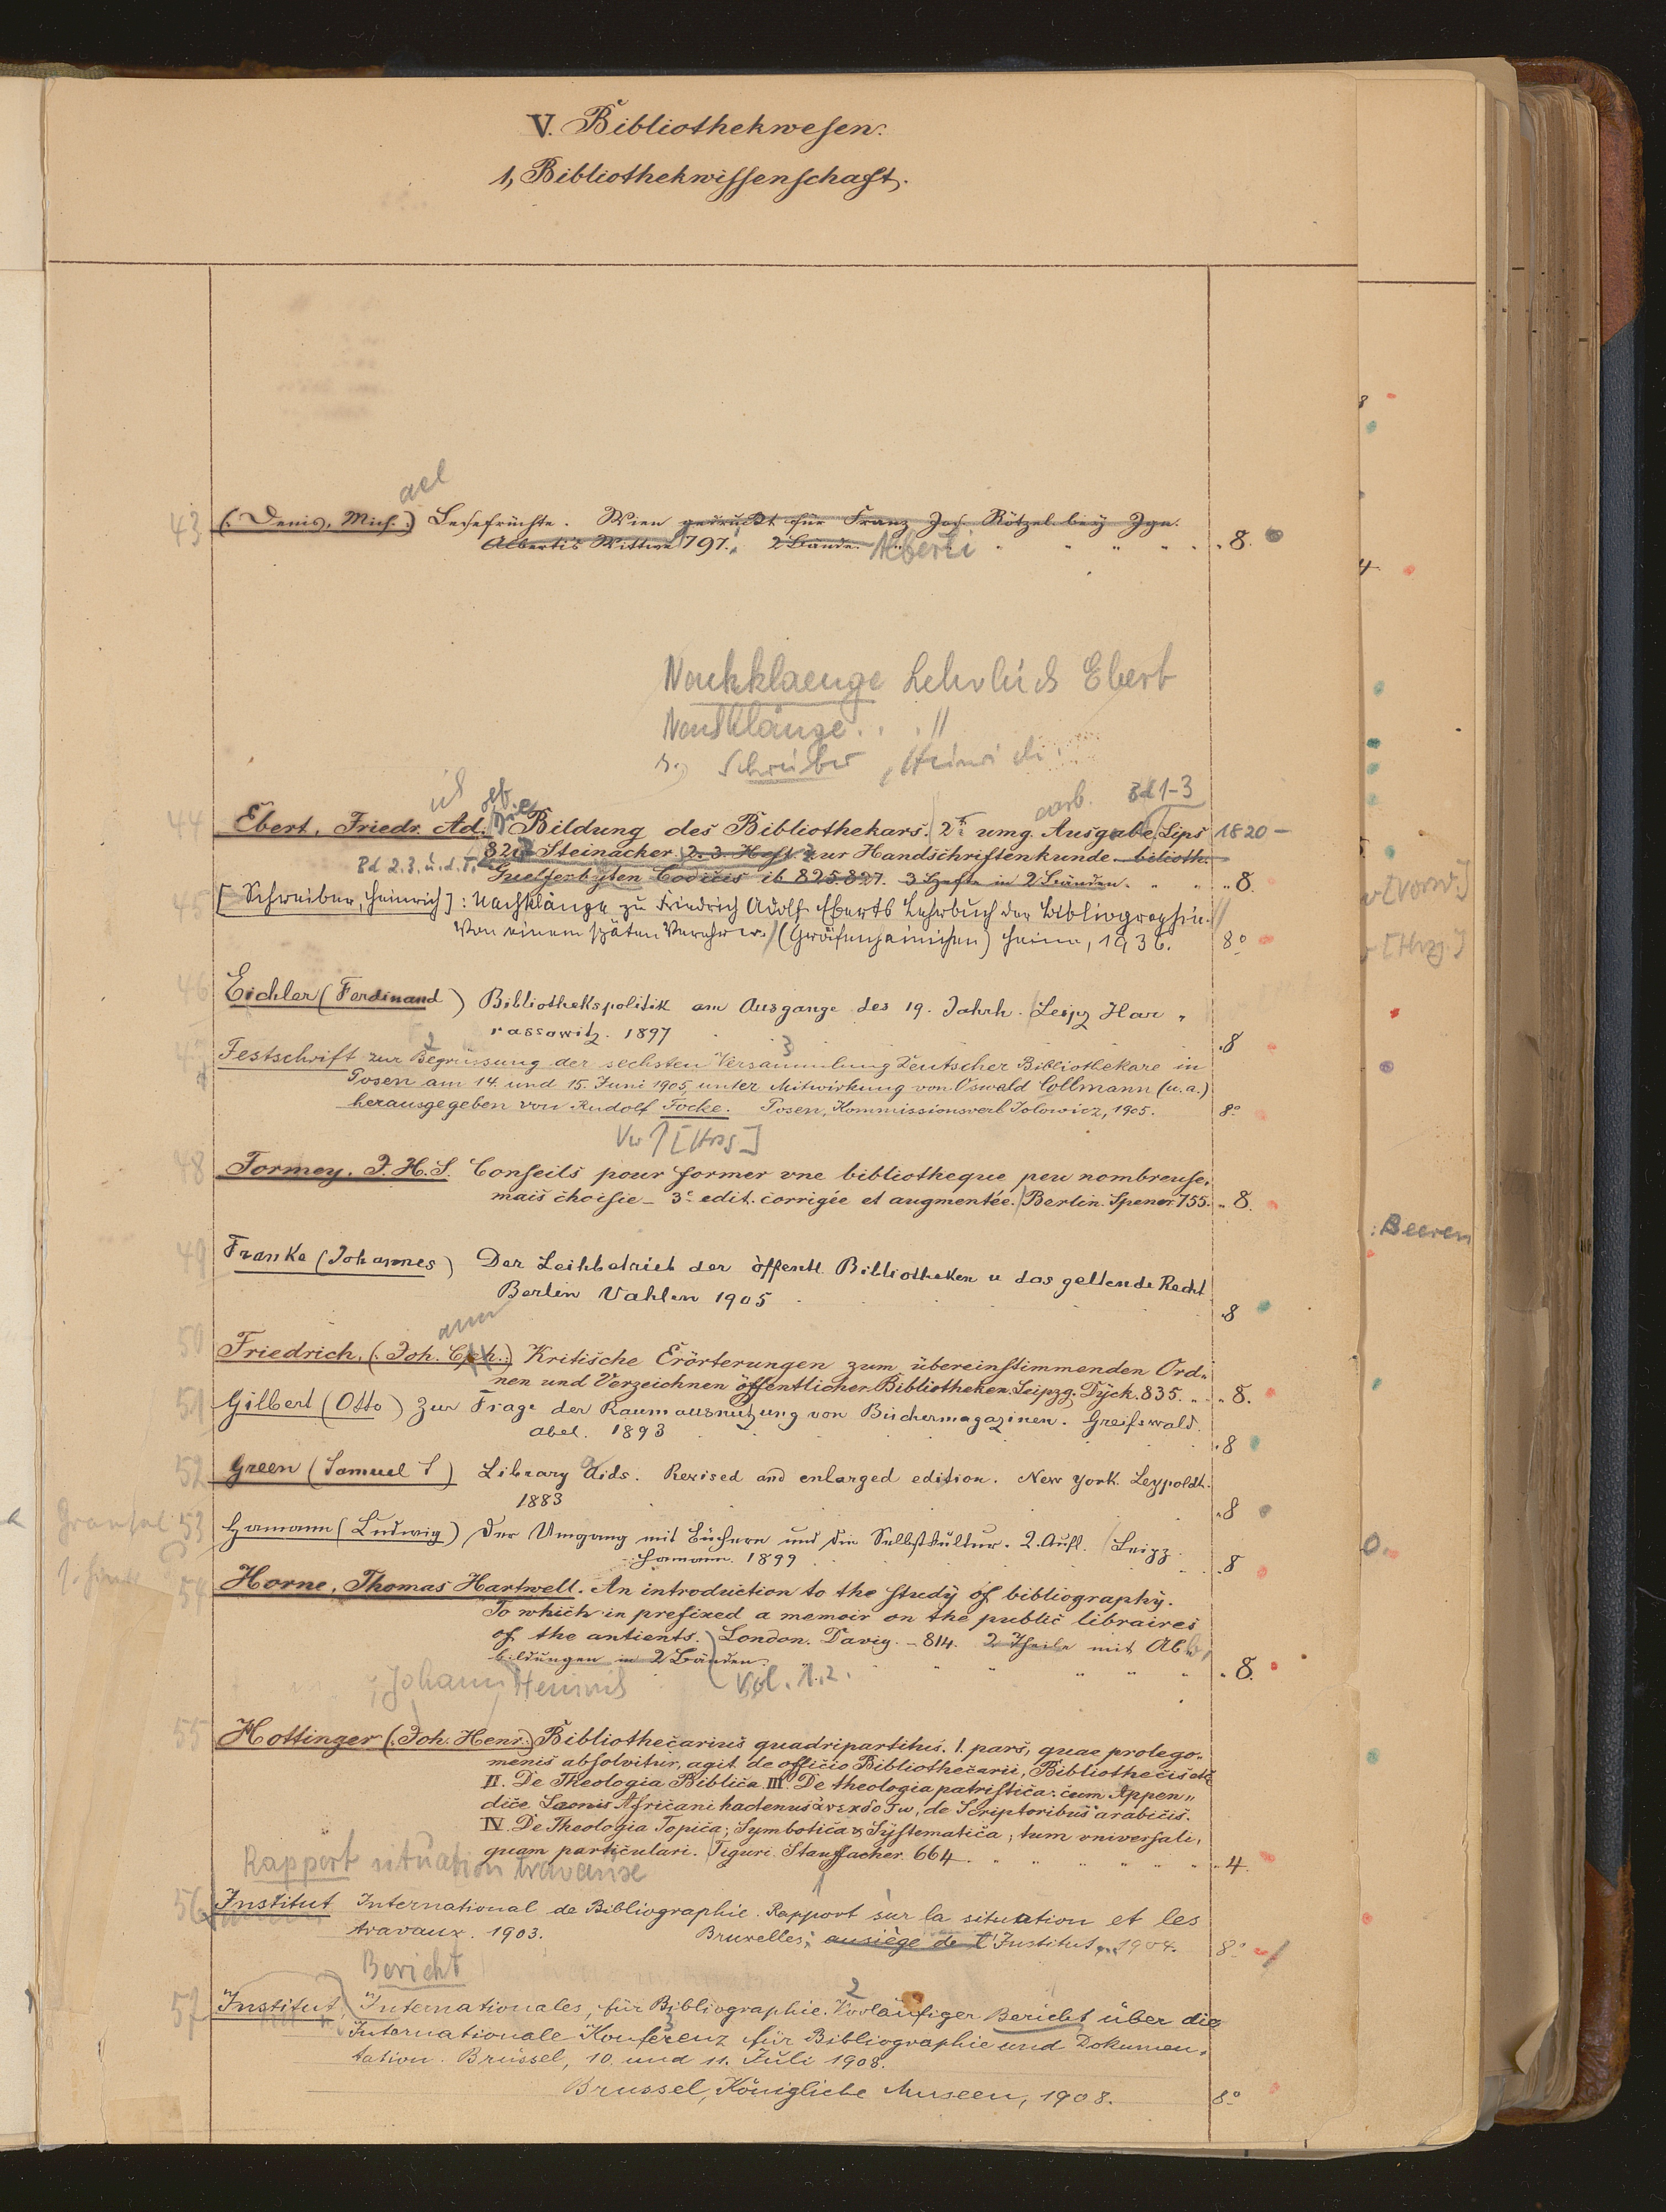 V. Bibliothekwesen.
1, Bibliothekwissenschaft.
ael
43 (: Denis, Mich. :) Lesefrüchte. Wien gedruckt für Franz Jos. Rötzel bey Ign.
Alberti's Wittwe 797. 2 Bände. Alberti 8.
Nachklaenge Lehrbuch Ebert
Nachklänge . . . //
s. Schreiber, Heinrich
carb. Bd 1-3
44 Ebert, Friedr. Ad. Die Bildung des Bibliothekars. 2te umg. Ausgabe. Lips 1820 -
820 Steinacker. 2. 3. Heft. zur Handschriftenkunde. biblioth.
Bd 2.3. u. d. T.
Guelferbyten Codicis ib 825. 827. 3 Hefte in 2 Bänden. 8.
45 [Schreiber, Heinrich]: Nachklänge zu Friedrich Adolf Eberts Lehrbuch der Bibliographie. //
Von einem späten Verehrer. / (Gräfenhainichen) Heine, 1936. 8°
46 Eichler (Ferdinand) Bibliothekspolitik am Ausgange des 19. Jahrh. Leipz Har „
rassowitz. 1897 8
47 Festschrift zur Begrüssung der sechsten Versammlung Deutscher Bibliothekare in
Posen am 14. und 15. Juni 1905 unter Mitwirkung von Oswald Collmann (u. a.)
herausgegeben von Rudolf Focke. Posen, Kommissionsverl Jolowicz, 1905. 8°
Vw ↑ [Hrsg]
48 Formey. J. H. S. Conseils pour former vne bibliotheque peu nombreuse,
mais choisie - 3e edit. corrigée et augmentée. Berlin. Spener. 755. 8.
49 Franke (Johannes) Der Leihbetrieb der öffentl. Bibliotheken u das geltende Recht
Berlin Vahlen 1905 8
ann
50 Friedrich, (: Joh. Cph. :) Kritische Erörterungen zum übereinstimmenden Ord„
nen und Verzeichnen öffentlicher Bibliotheken. Leipzg. Dyck. 835. 8.
51 Gilbert (Otto) Zur Frage der Raumausnutzung von Büchermagazinen. Greifswald.
Abel. 1893 8
52 Green (Samuel S) Library Aids. Revised and enlarged edition. New York. Leypoldt.
1883 8
53 Hamann (Ludwig) Der Umgang mit Büchern und die Selbstkultur. 2. Aufl. Leipz.
Hamann. 1899 8
54 Horne, Thomas Hartwell. An introduction to the study of bibliography.
To which in prefixed a memoir on the public libraires
of the antients. London. Davig. - 814. 2 Theile mit Abb
bildungen in 2 Bänden. 8.
Johann Heinrich Vol. 1. 2.
55 Hottinger (: Joh. Henr. :) Bibliothecarius quadripartitus. I. pars, quae prolego„
menis absolvitur, agit de officio Bibliothecarii, Bibliothecis etc
II. De Theologia Biblica. III. De theologia patristica: cum Appen„
dice Leonis Africani hactenus ἀνεκδοτω, de Scriptoribus arabicis.
IV. De Theologia Topica; Symbolica & Systematica; tum vniversali,
quam particulari. Tiguri. Stauffacher. 664. 4.
Rapport situation travause
56 Institut International de Bibliographie. Rapport sur la situation et les
travaux. 1903. Bruxelles: au siège de l'Institut, 1904. 8°
Bericht
57 Institut, Internationales, für Bibliographie. Vorläufiger Bericht über die
Internationale Konferenz für Bibliographie und Dokumen„
tation. Brüssel, 10. und 11. Juli 1908.
Brussel, Königliche Museen, 1908. 8°
v [Vorw.]
v [Hrsg.]
: Beeren